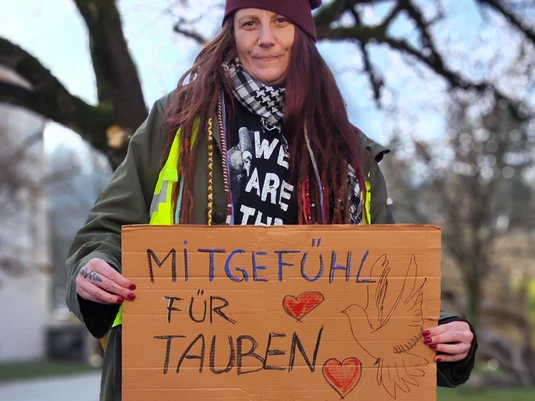 WE
ARE
TH
MiTGEFÜHL
FÜR
TAUBEN